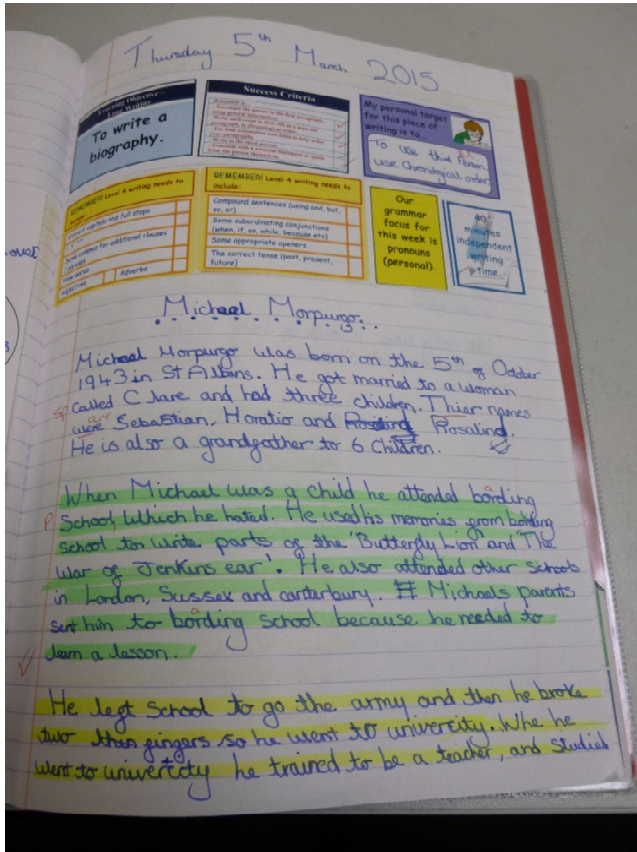 Thursday 5th March 2015
Learning Objective -
Long Writing
To write a
biography.
Success Criteria
My personal target
for this piece of
writing is to...
To use third Person
use Chronological order
REMEMBER! Level 4 writing needs to
capitals and full stops
commas for additional clauses
Adjectives
Adverbs
REMEMBER! Level 4 writing needs to
include:
Compound sentences (using and, but,
so, or)
Some subordinating conjunctions
(when, if, as, while, because etc)
Some appropriate openers
The correct tense (past, present,
future)
Our
grammar
focus for
this week is
pronouns
(personal).
minutes
independent
writing
time.
Michael Morpurgo
Michael Morpurgo was born on the 5th of Octoer
1943 in St Albans. He got married to a woman
called Clare and had three children. Thier names
were Sebastian, Horatio and Rosalind.
He is also a grandfather to 6 Children.
When Michael was a child he attended bording
School, which he hated. He used his memories from bording
school to write parts of the 'Butterfly Lion' and 'The
War of Jenkins ear'. He also attended other schools
in London, Sussex and canterbury. Michaels parents
sent him to bording school because he needed to
learn a lesson.
He left School to go the army and then he broke
two fingers so he went to univercity. Whe he
went to univercity he trained to be a teacher, and studied